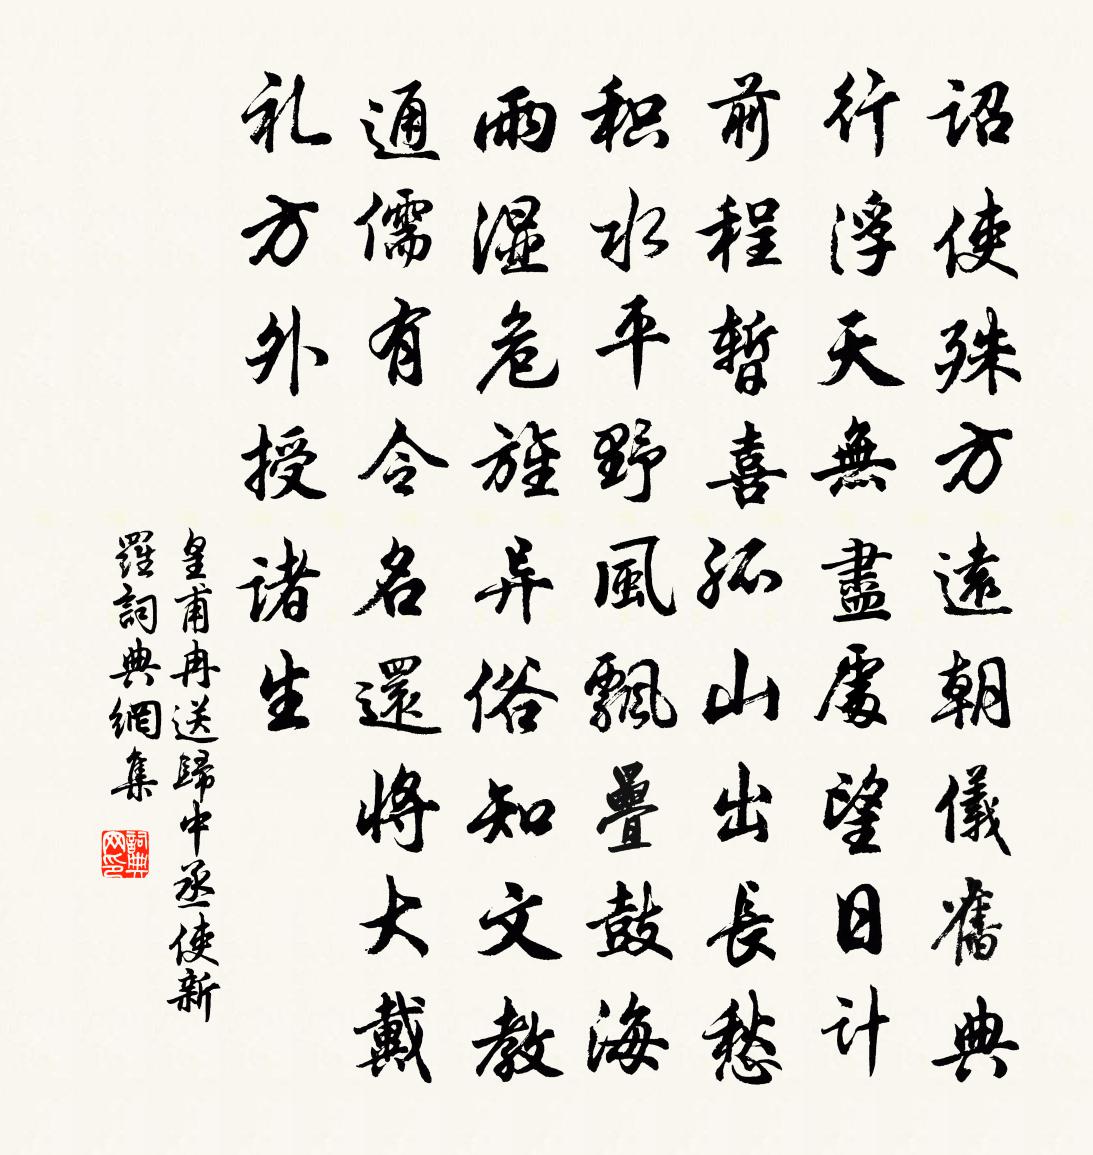 詔使殊方遠朝儀舊典
行浮天無盡處望日計
前程暫喜孤山出長愁
积水平野風飄疊鼓海
雨湿危旌异俗知文教
通儒有令名還將大戴
礼方外授諸生
皇甫冉送歸中丞使新
羅詞典網集
詞典
网印